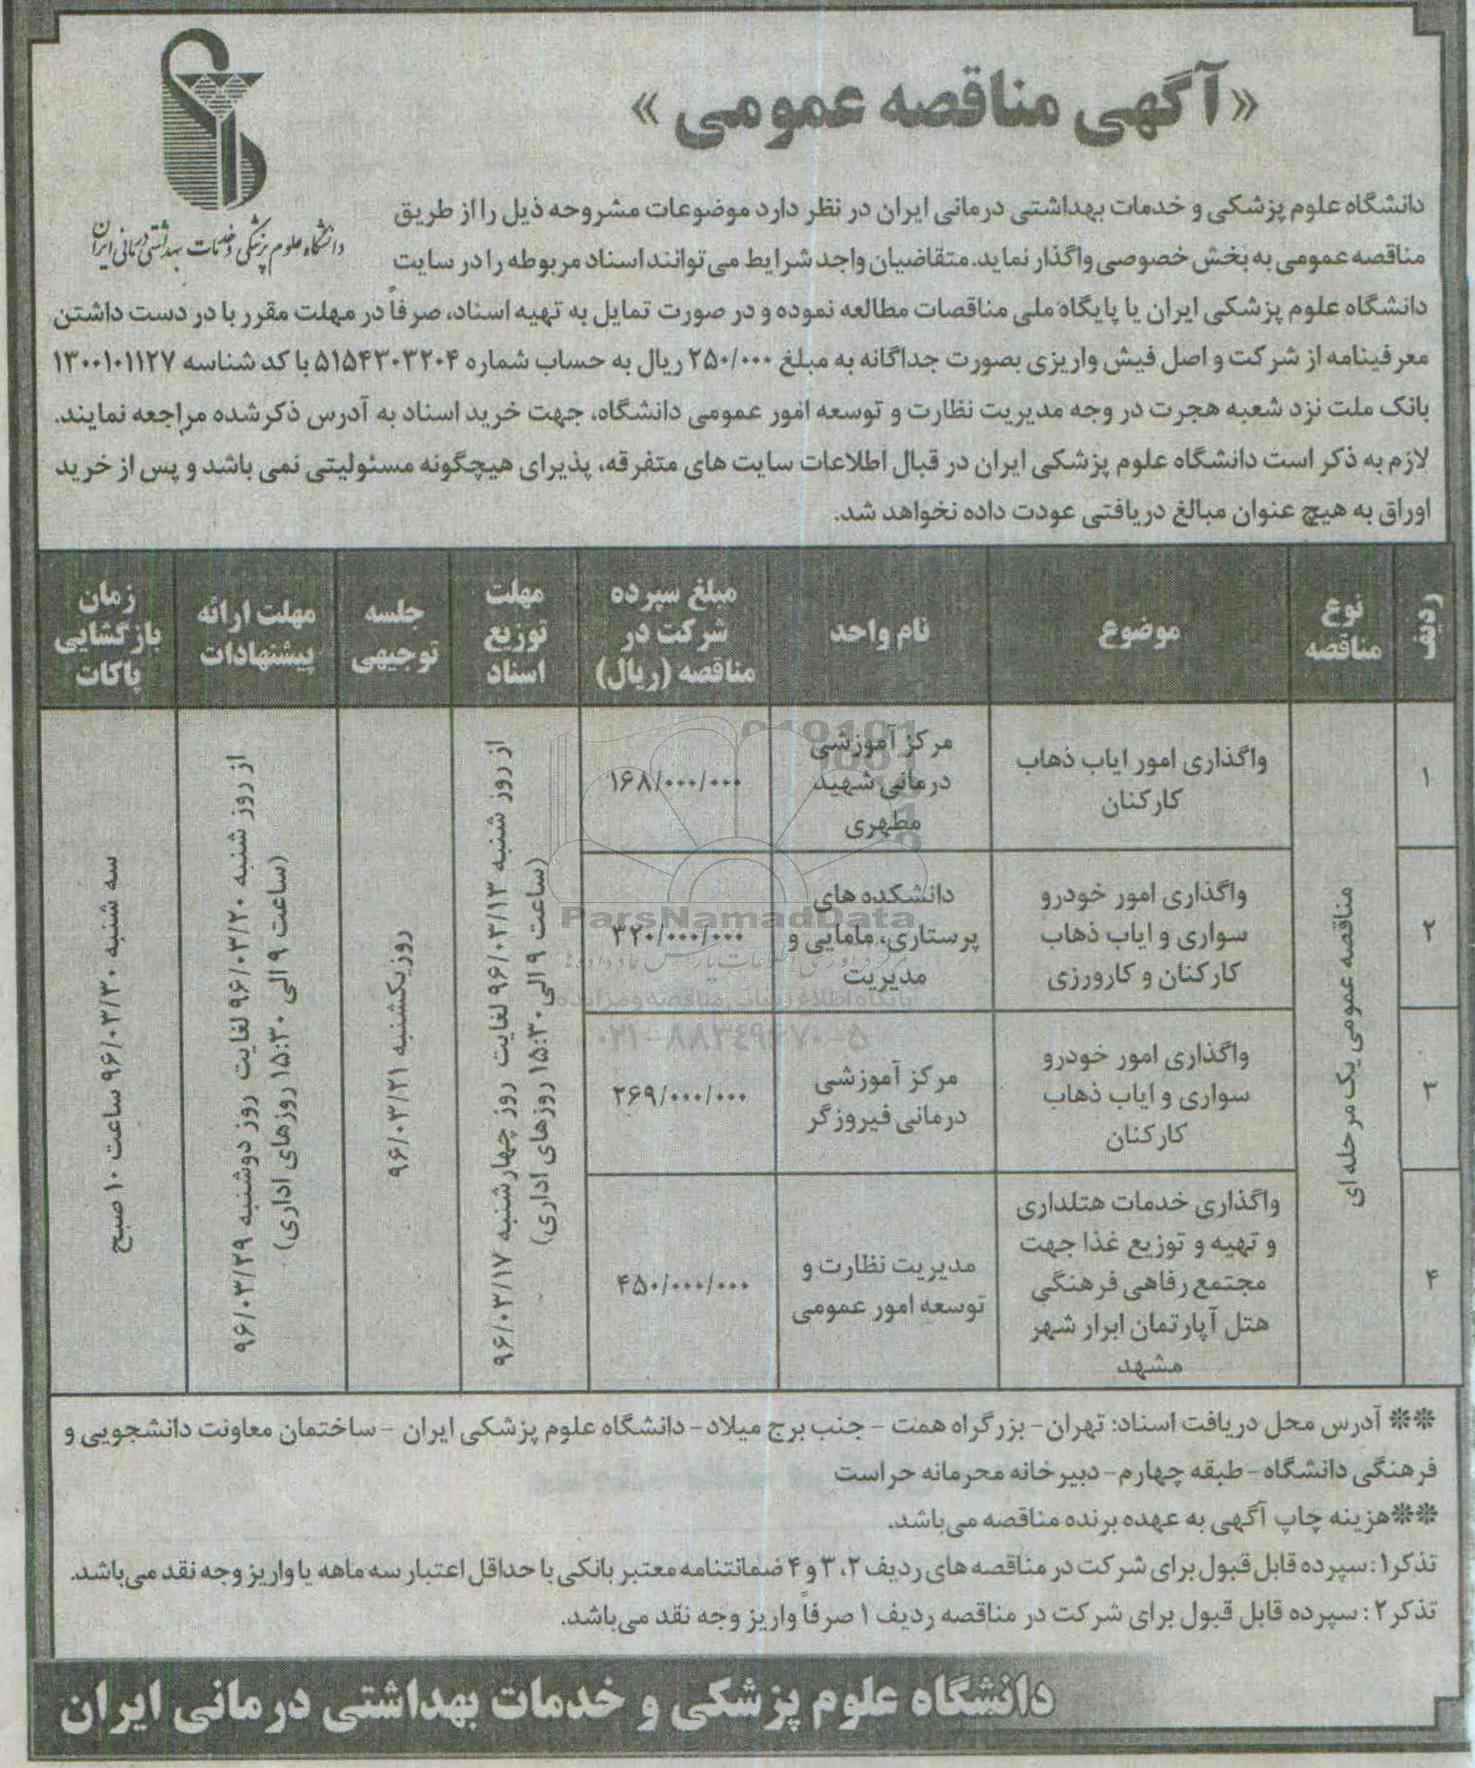 «آگهی مناقصه عمومی»
دانشگاه علوم پزشکی و خدمات بهداشتی درمانی ایران
دانشگاه علوم پزشکی و خدمات بهداشتی درمانی ایران در نظر دارد موضوعات مشروحه ذیل را از طریق
مناقصه عمومی به بخش خصوصی واگذار نماید. متقاضیان واجد شرایط می توانند اسناد مربوطه را در سایت
دانشگاه علوم پزشکی ایران یا پایگاه ملی مناقصات مطالعه نموده و در صورت تمایل به تهیه اسناد، صرفاً در مهلت مقرر با در دست داشتن
معرفینامه از شرکت و اصل فیش واریزی بصورت جداگانه به مبلغ ۲۵۰/۰۰۰ ریال به حساب شماره ۵۱۵۴۳۰۳۲۰۴ با کد شناسه ۱۳۰۰۱۰۱۱۲۷
بانک ملت نزد شعبه هجرت در وجه مدیریت نظارت و توسعه امور عمومی دانشگاه، جهت خرید اسناد به آدرس ذکر شده مراجعه نمایند.
لازم به ذکر است دانشگاه علوم پزشکی ایران در قبال اطلاعات سایت های متفرقه، پذیرای هیچگونه مسئولیتی نمی باشد و پس از خرید
اوراق به هیچ عنوان مبالغ دریافتی عودت داده نخواهد شد.
ردیف
نوع
مناقصه
موضوع
نام واحد
مبلغ سپرده
شرکت در
مناقصه (ریال)
مهلت
توزیع
اسناد
جلسه
توجیهی
مهلت ارائه
پیشنهادات
زمان
بازگشایی
پاکات
۱
مناقصه عمومی یک مرحله ای
واگذاری امور ایاب ذهاب
کارکنان
مرکز آموزشی
درمانی شهید
مطهری
۱۶۸/۰۰۰/۰۰۰
از روز شنبه ۹۶/۰۳/۱۳ لغایت روز چهارشنبه ۹۶/۰۳/۱۷
(ساعت ۹ الی ۱۵:۳۰ روزهای اداری)
روز یکشنبه ۹۶/۰۳/۲۱
از روز شنبه ۹۶/۰۳/۲۰ لغایت روز دوشنبه ۹۶/۰۳/۲۹
(ساعت ۹ الی ۱۵:۳۰ روزهای اداری)
سه شنبه ۹۶/۰۳/۳۰ ساعت ۱۰ صبح
۲
واگذاری امور خودرو
سواری و ایاب ذهاب
کارکنان و کارورزی
دانشکده های
پرستاری، مامایی و
مدیریت
۳۲۰/۰۰۰/۰۰۰
۳
واگذاری امور خودرو
سواری و ایاب ذهاب
کارکنان
مرکز آموزشی
درمانی فیروزگر
۲۶۹/۰۰۰/۰۰۰
۴
واگذاری خدمات هتلداری
و تهیه و توزیع غذا جهت
مجتمع رفاهی فرهنگی
هتل آپارتمان ابرار شهر
مشهد
مدیریت نظارت و
توسعه امور عمومی
۴۵۰/۰۰۰/۰۰۰
ParsNamadData
پایگاه اطلاع رسانی مناقصه و مزایده
۰۲۱-۸۸۳۴۹۶۷۰-۵
** آدرس محل دریافت اسناد: تهران- بزرگراه همت - جنب برج میلاد- دانشگاه علوم پزشکی ایران - ساختمان معاونت دانشجویی و
فرهنگی دانشگاه- طبقه چهارم- دبیرخانه محرمانه حراست
**هزینه چاپ آگهی به عهده برنده مناقصه می‌باشد.
تذکر۱: سپرده قابل قبول برای شرکت در مناقصه های ردیف ۲، ۳ و ۴ ضمانتنامه معتبر بانکی با حداقل اعتبار سه ماهه یا واریز وجه نقد می‌باشد.
تذکر۲: سپرده قابل قبول برای شرکت در مناقصه ردیف ۱ صرفاً واریز وجه نقد می‌باشد.
دانشگاه علوم پزشکی و خدمات بهداشتی درمانی ایران